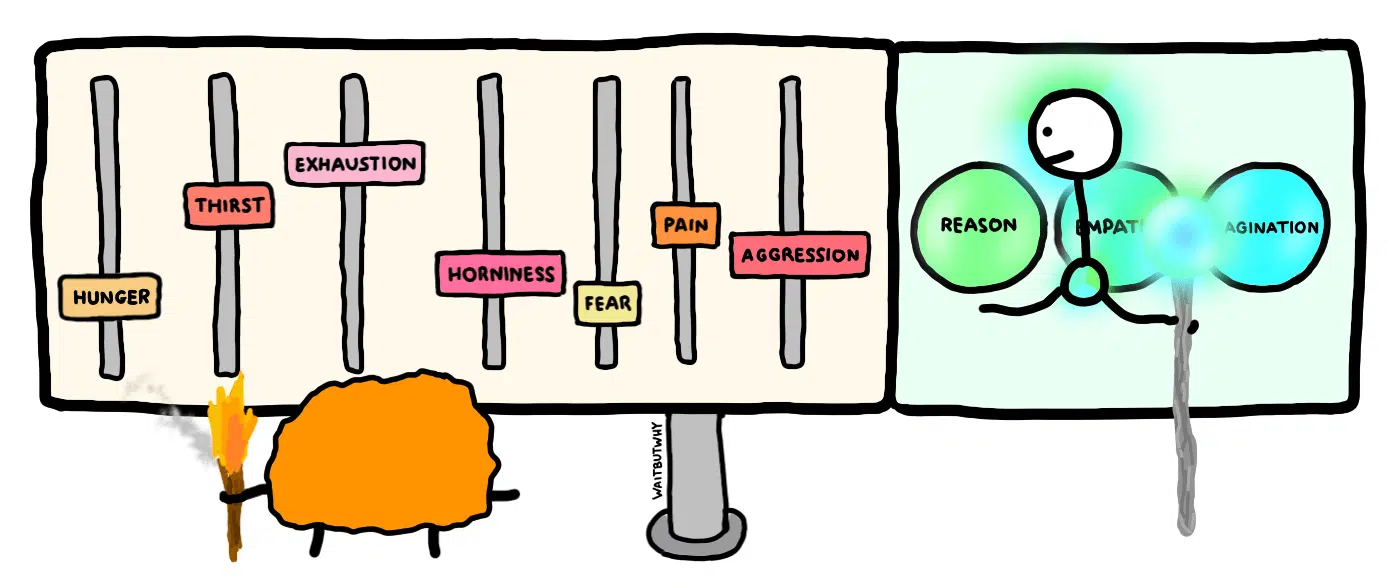 HUNGER
THIRST
EXHAUSTION
HORNINESS
FEAR
PAIN
AGGRESSION
REASON
EMPAT
AGINATION
WAITBUTWHY